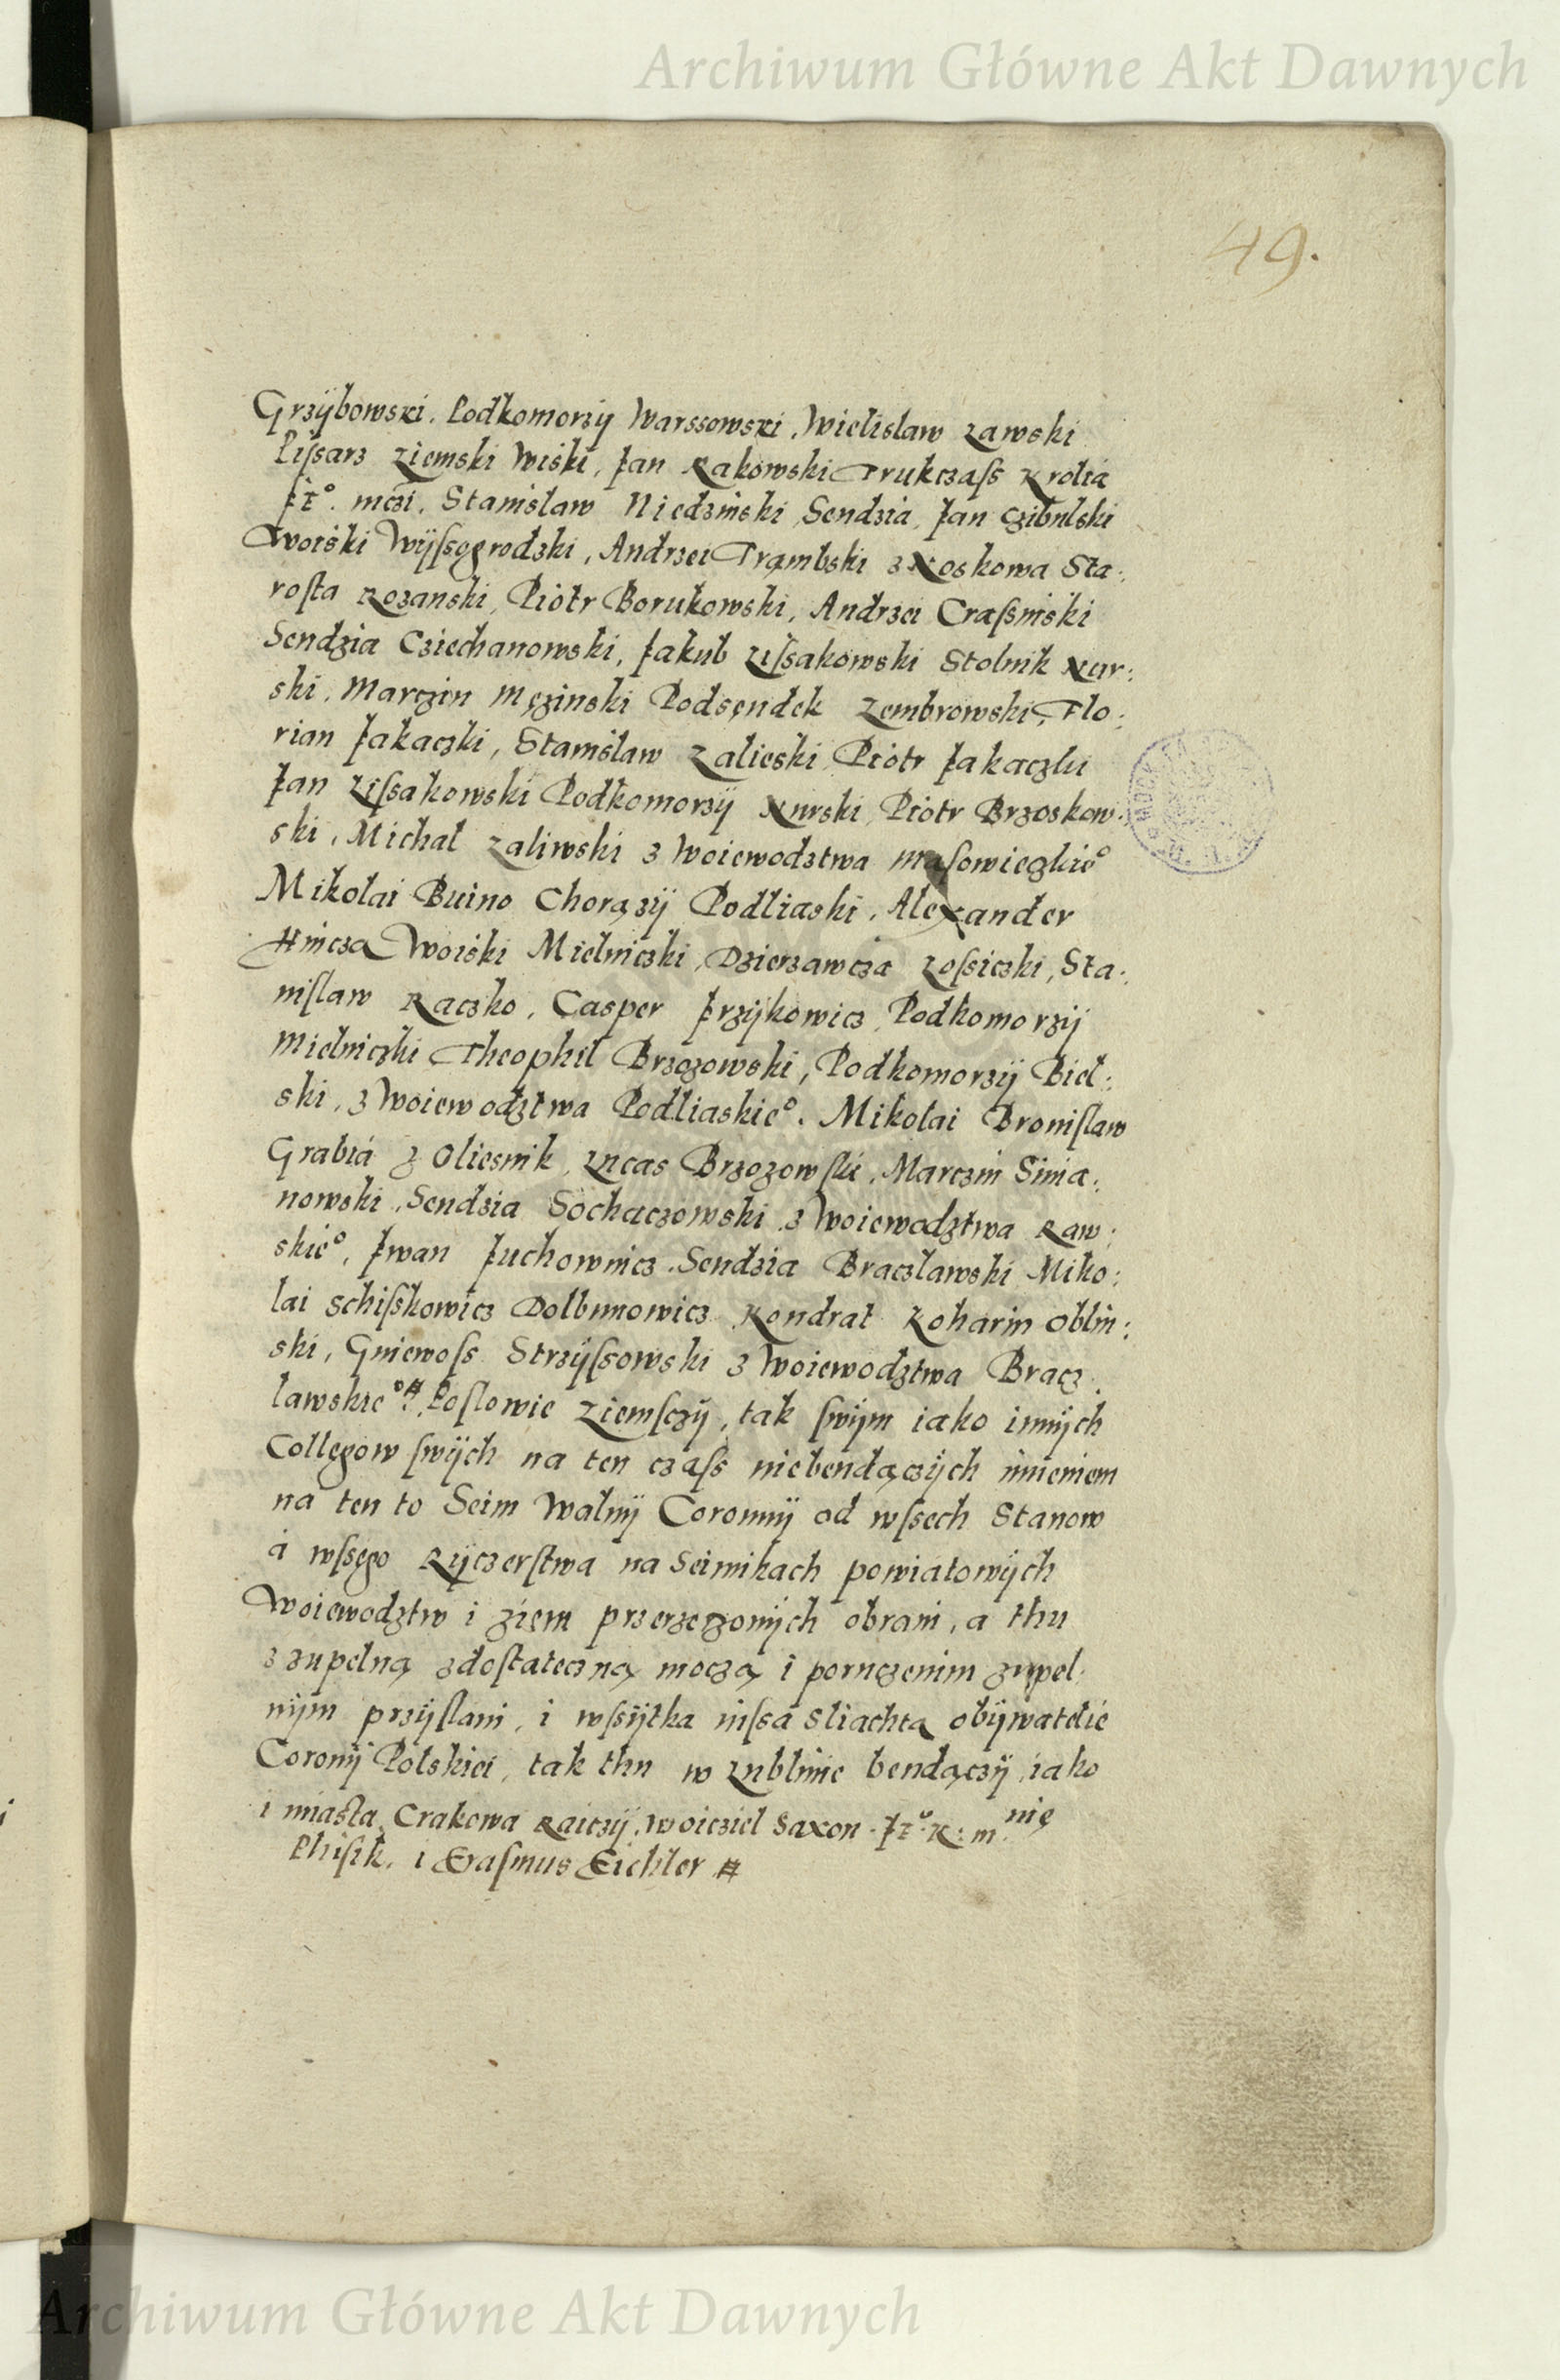 Archiwum Główne Akt Dawnych
49.
Grzÿbowski. Podkomorzÿ Warssowski, Wielislaw Zawski
Piſsarz Ziemski Wiski, Jan Rakowski Trukczaſs Krolia
Je° mczi, Stanislaw Niedzinski Sendzia, Jan Czibulski
Woiski Wÿſsogrodzki, Andrzei Trąmbski z Noskowa Sta:
roſta Rozanski, Piotr Borukowski, Andrzei Craſsinski
Sendzia Cziechanowski, Jakub Liſsakowski Stolnik Nur:
ski, Marczin Męzinski Podsendek Zembrowski, Flo:
rian Jakaczki, Stanislaw Zalieski Piotr Jakaczki
Jan Liſsakowski Podkomorzÿ Nurski, Piotr Brzoskow:
ski, Michal Zaliwski z Woiewodztwa Maſowieczkie°
Mikolai Buino Chorązÿ Podliaski, Alexander
Hincza Woiski Mielniczki, Dzierzawcza Loſsiczki, Sta:
niſlaw Raczko, Casper Jrzÿkowicz, Podkomorzÿ
Mielniczki Theophil Brzozowski, Podkomorzÿ Biel:
ski, z Woiewodztwa Podliaskie°. Mikolai Broniſlaw
Grabia z Oliesnik, Lucas Brzozowſki, Marczin Sinia:
nowski, Sendzia Sochaczowski z Woiewodztwa Raw:
skie°, Jwan Juchownicz Sendzia Braczlawski Miko:
lai Schiſskowicz Dolbunowicz Kondrat Koharin Oblin:
ski, Gniewoſs Strzÿſsowski z Woiewodztwa Bracz
lawskie° # Poſlowie Ziemſczÿ, tak ſwÿm iako innÿch
Collegow ſwÿch na ten czaſs niebendączÿch imieniem
na ten to Seim Walnÿ Coronnÿ od wſsech Stanow
a wſsego Rÿczerſtwa na Seimikach powiatowÿch
Woiewodztw i ziem przerzezonÿch obrani, a thu
z zupelną zdoſtateczną moczą i poruczenim zupel:
nÿm przÿſlani, i wſsÿtka inſsa Sliachta obÿwatelie
Coronÿ Polskiei, tak thu w Lublinie bendączÿ, iako
i miaſta Crakowa Raiczÿ, Woicziel Saxon. Je° K: m. nię
Phiſik, i Eraſmus Eichler #
Archiwum Główne Akt Dawnych